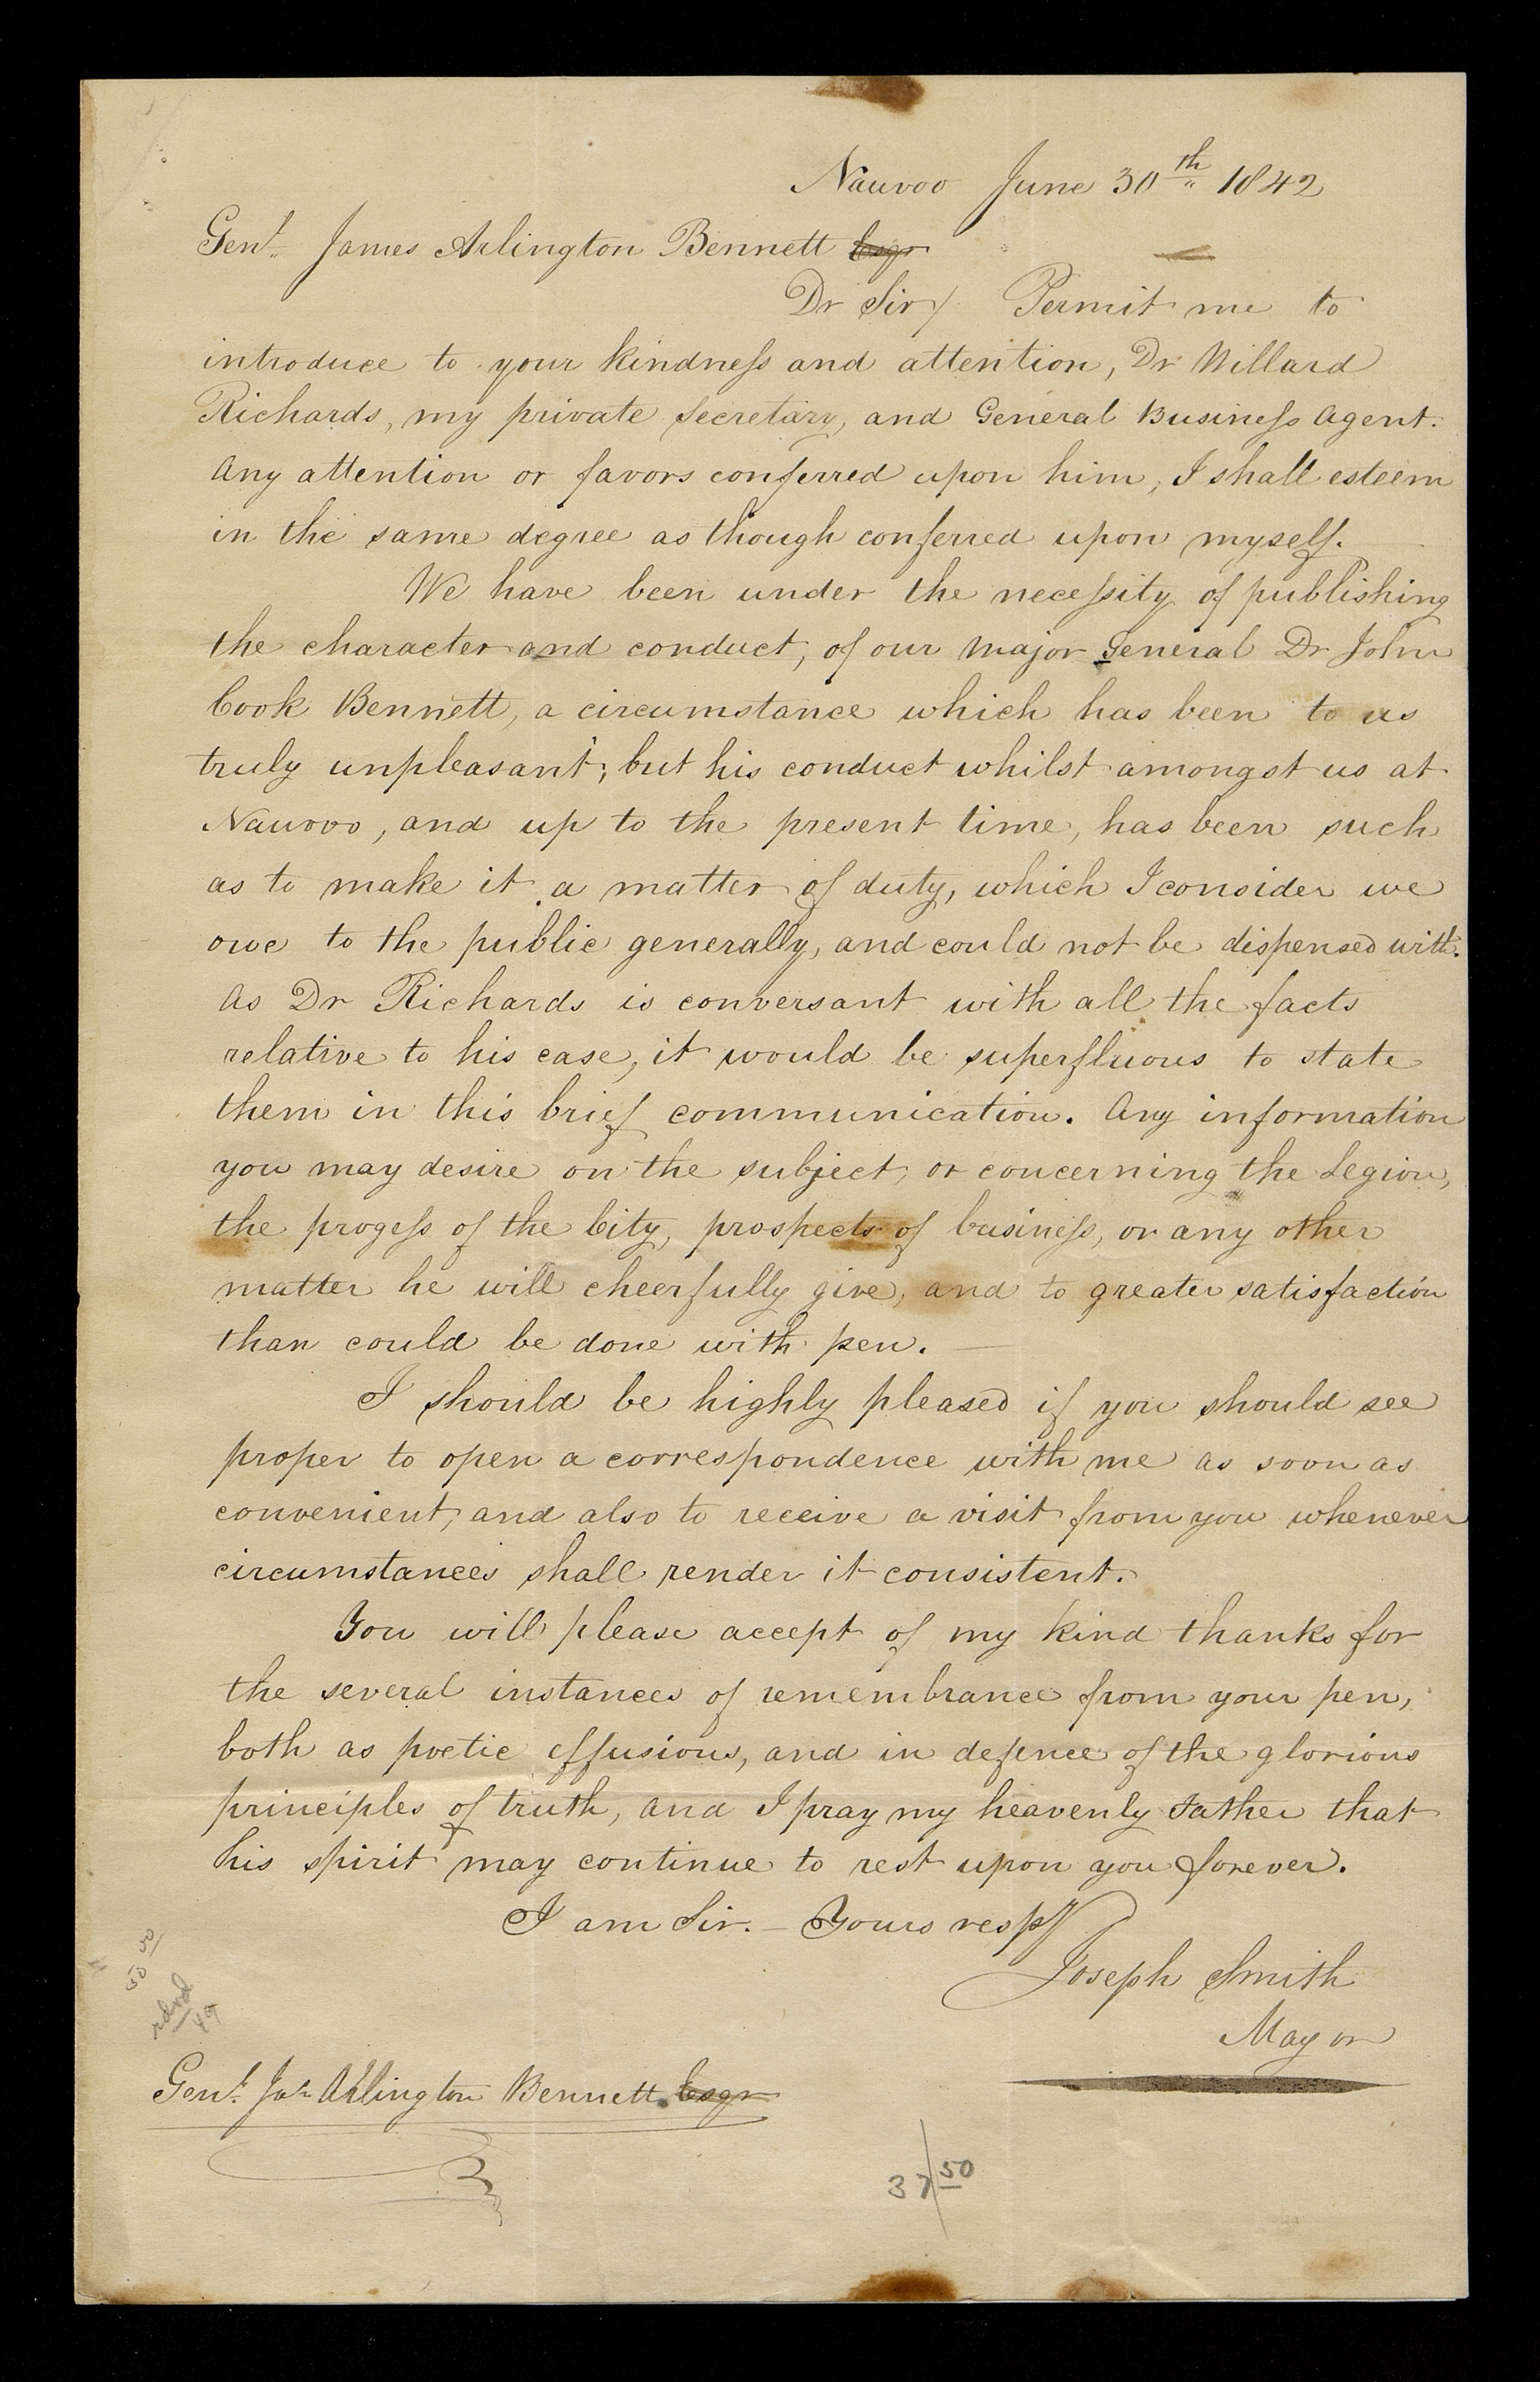 Nauvoo June 30th 1842
Genl. James Arlington Bennett Esqr
Dr Sir/ Permit me to
introduce to your kindness and attention, Dr Willard
Richards, my private Secretary, and General Business Agent.
Any attention or favors conferred upon him, I shall esteem
in the same degree as though conferred upon myself.
We have been under the necessity of publishing
the character and conduct, of our Major General Dr John
Cook Bennett, a circumstance which has been to us
truly unpleasant; but his conduct whilst amongst us at
Nauvoo, and up to the present time, has been such
as to make it a matter of duty, which I consider we
owe to the public generally, and could not be dispensed with.
As Dr Richards is conversant with all the facts
relative to his case, it would be superfluous to state
them in this brief communication. Any information
you may desire on the subject, or concerning the Legion,
the progess of the City, prospects of business, or any other
matter he will cheerfully give, and to greater satisfaction
than could be done with pen.
I should be highly pleased if you should see
proper to open a correspondence with me as soon as
convenient, and also to receive a visit from you whenever
circumstances shall render it consistent.
You will please accept of my kind thanks for
the several instances of remembrance from your pen,
both as poetic effusions, and in defence of the glorious
principles of truth, and I pray my heavenly Father that
his spirit may continue to rest upon you forever.
I am Sir. — Yours respy
Joseph Smith
Mayor
Genl. Jas Arlington Bennett Esqr
37/50